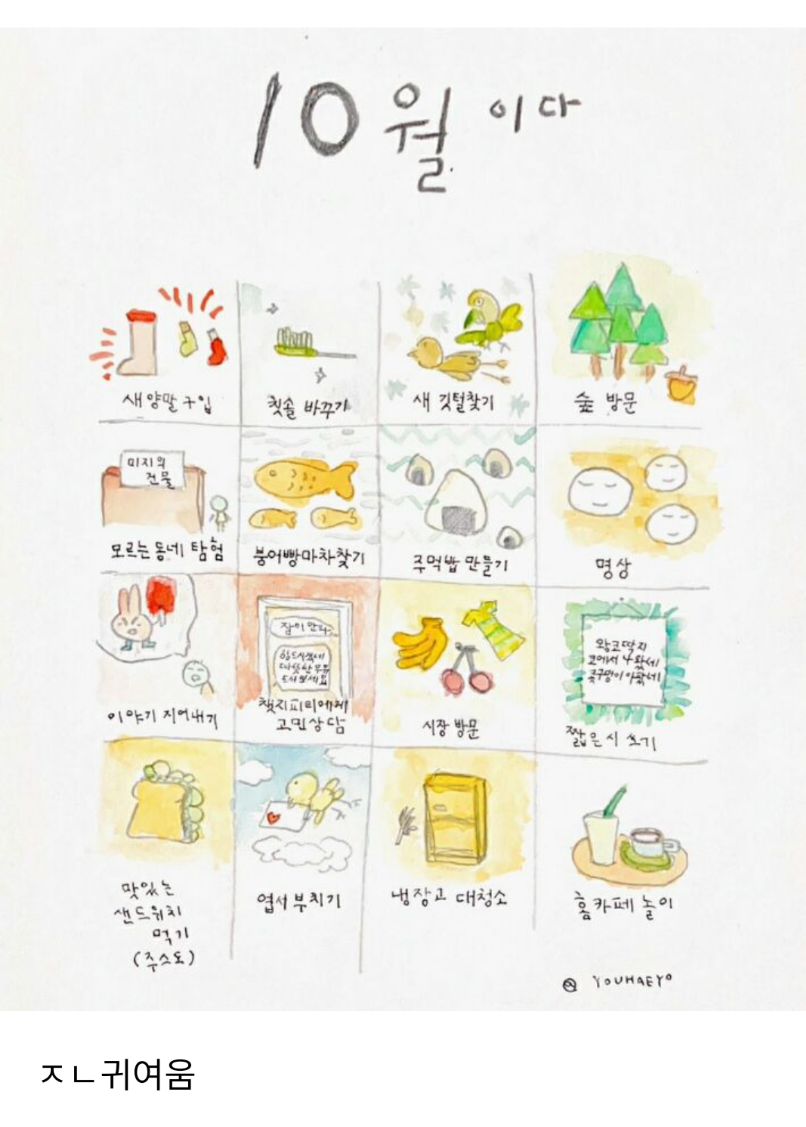 10월이다
새 양말 구입
칫솔 바꾸기
새 깃털찾기
숲 방문
미지의
건물
모르는 동네 탐험
붕어빵마차찾기
주먹밥 만들기
명상
이야기 지어내기
잠이 안 와..
힘드시겠네
따뜻한 우유
드셔보세요
챗지피티에게
고민상담
시장 방문
왕코딱지
코에서 나왔네
콧구멍이 아팠네
짧은 시 쓰기
맛있는
샌드위치
먹기
(주스도)
엽서 부치기
냉장고 대청소
홈카페 놀이
@ YOUHAEYO
ㅈㄴ귀여움